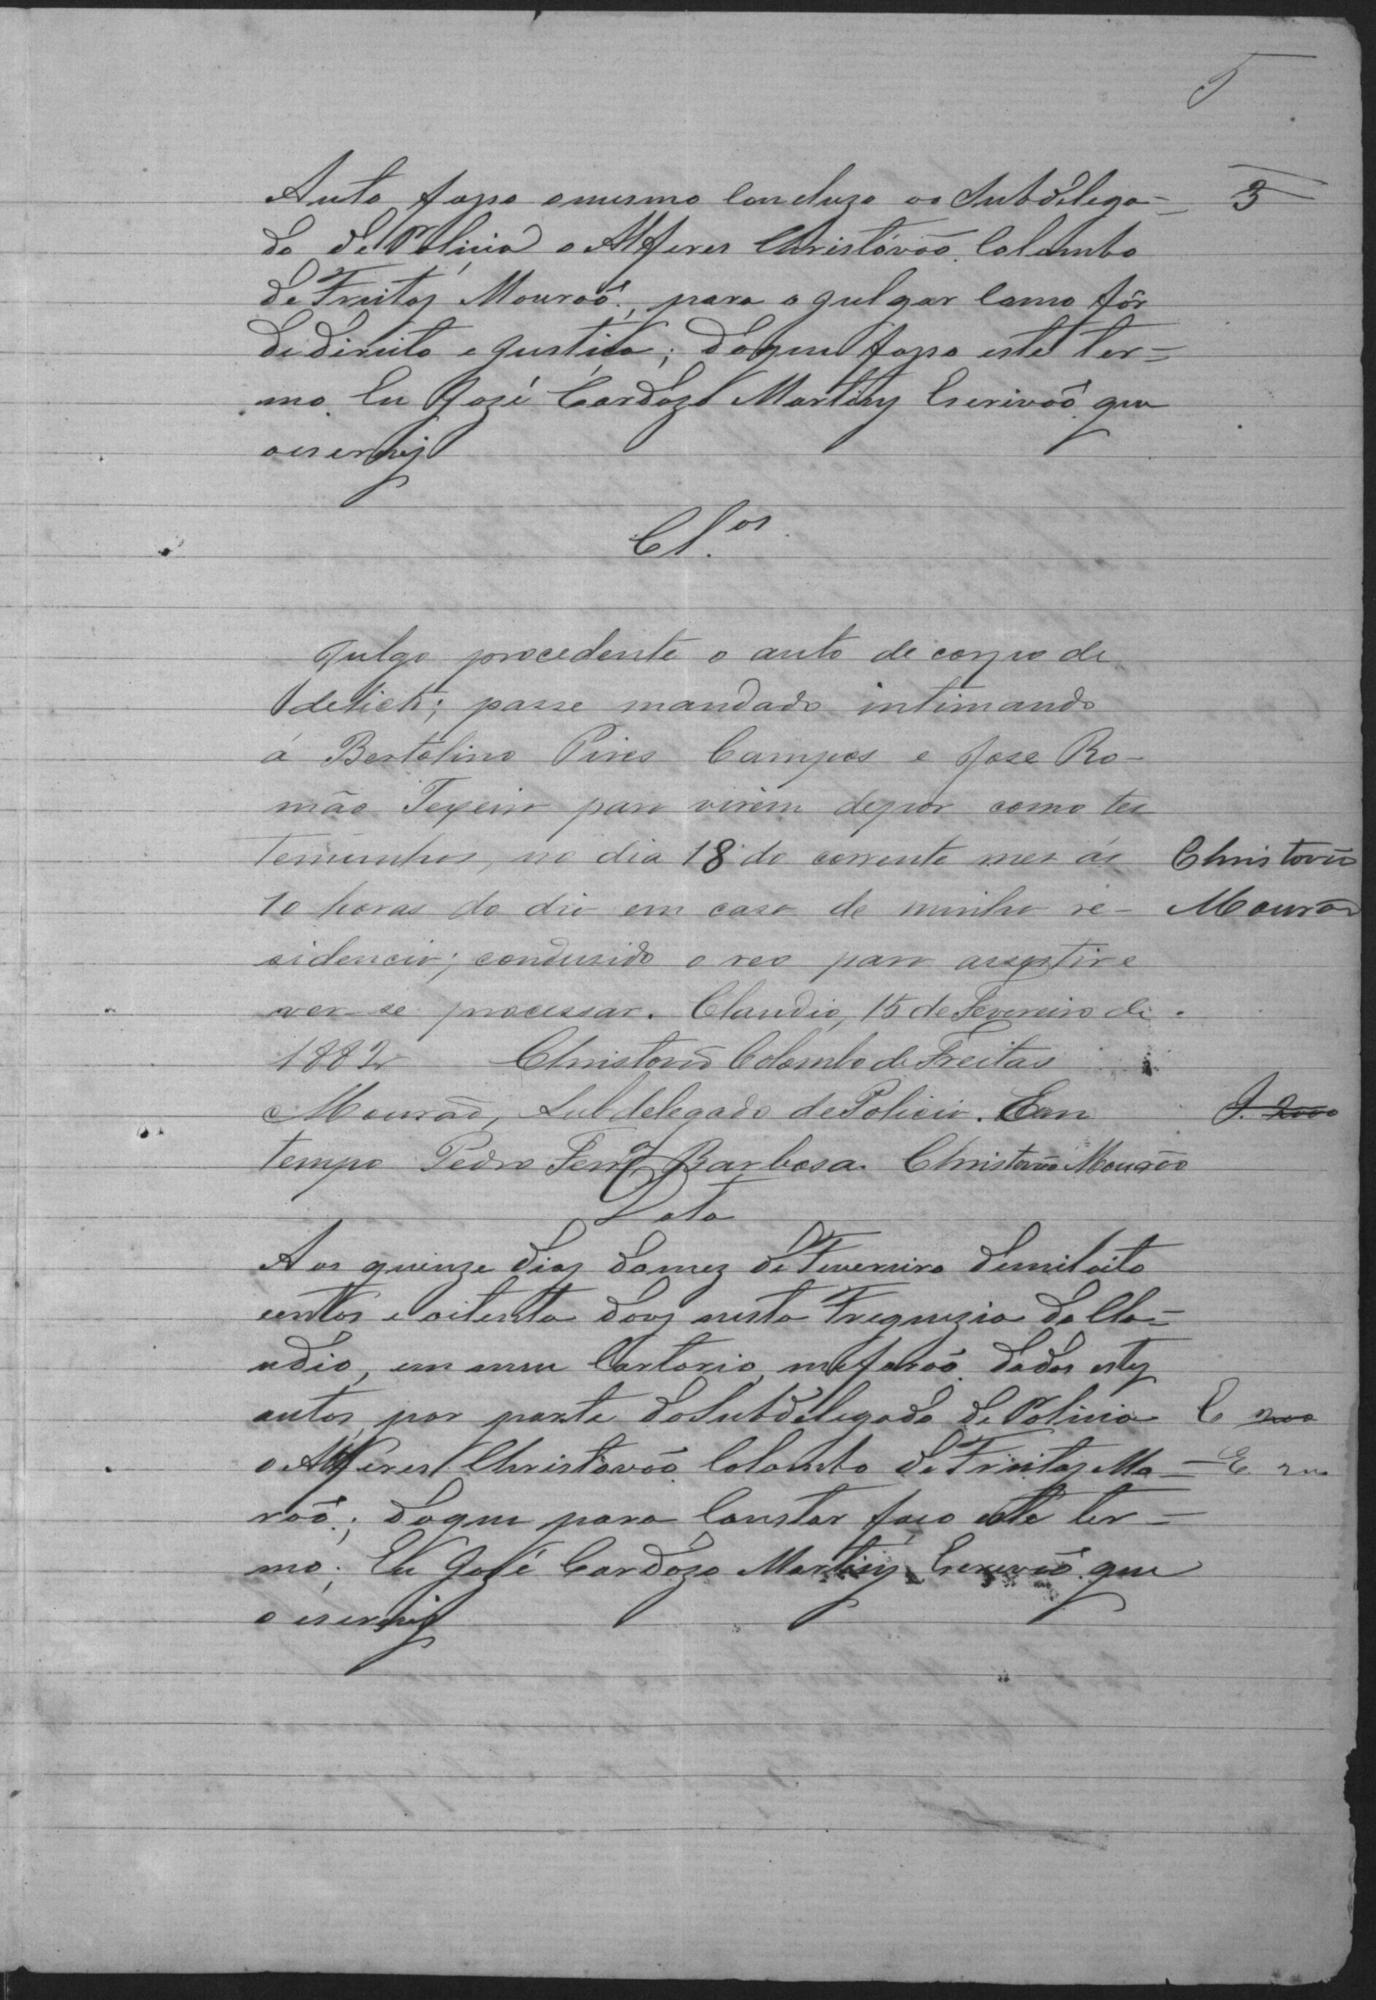 5
Auto faço omesmo concluzo ao Subdelega- 3
do de Policia o Alferes Christovaõ Colombo
de Freitas Mouraõ, para o julgar como fôr
de direito e justiça; do que faço este ter-
mo. Eu José Cardozo Martins Escrivaõ que
o escrevij
Cl.os
Julgo procedente o auto de corpo de
delicto; passe mandado intimando
á Bertolino Pires Campos e Jose Ro-
mão Texeira para virem depor como tes
temunhas, no dia 18 do corrente mes ás Christovão
10 horas do dia em casa de minha re- Mourão
sidencia; condusido o reo para assestir e
ver se processar. Claudio, 15 de Fevereiro de
1882 Christovão Colombo de Freitas
Mourão, Subdelegado de Policia. Em J. 2000
tempo Pedro Ferrª Barbosa. Christovão Mourão
Data
Aos quinze dias do mez de Fevereiro de mil oito
centos e oitenta dous nesta Freguezia do Cla-
udio, em meu Cartorio, me foraõ dados estes
autos, por parte do Subdelegado de Policia E 200
o Alferes Christovaõ Colombo de Freitas Mo- E 200
raõ; do que para constar faço este ter-
mo. Eu José Cardozo Martins Escrivaõ que
o escrevij